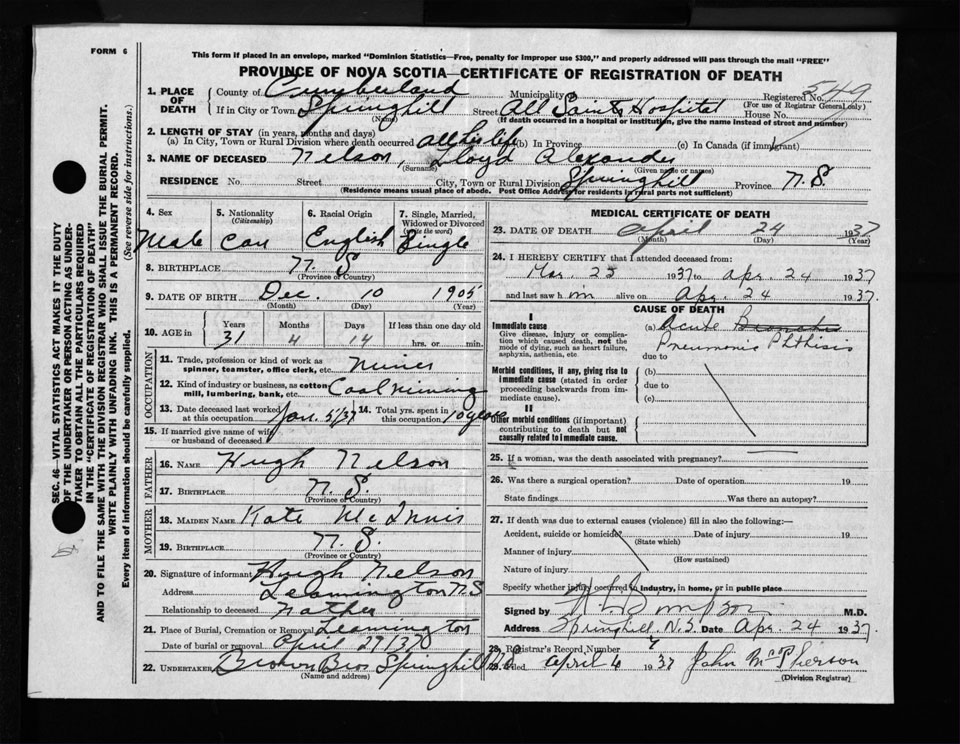 FORM 6
This form if placed in an envelope, marked "Dominion Statistics—Free, penalty for improper use $300," and properly addressed will pass through the mail "FREE"
PROVINCE OF NOVA SCOTIA—CERTIFICATE OF REGISTRATION OF DEATH
SEC. 46—VITAL STATISTICS ACT MAKES IT THE DUTY
OF THE UNDERTAKER OR PERSON ACTING AS UNDER-
TAKER TO OBTAIN ALL THE PARTICULARS REQUIRED
IN THE "CERTIFICATE OF REGISTRATION OF DEATH"
AND TO FILE THE SAME WITH THE DIVISION REGISTRAR WHO SHALL ISSUE THE BURIAL PERMIT.
WRITE PLAINLY WITH UNFADING INK. THIS IS A PERMANENT RECORD.
Every item of information should be carefully supplied. (See reverse side for instructions.)
1. PLACE OF DEATH County of Cumberland Municipality Registered No. 549
(For use of Registrar General only)
If in City or Town Springhill Street All Saints Hospital House No.
(Name) (If death occurred in a hospital or institution, give the name instead of street and number)
2. LENGTH OF STAY (in years, months and days)
(a) In City, Town or Rural Division where death occurred all his life (b) In Province (c) In Canada (if immigrant)
3. NAME OF DECEASED Nelson, Lloyd Alexander
(Surname) (Given name or names)
RESIDENCE No. Street City, Town or Rural Division Springhill Province N.S.
(Residence means usual place of abode. Post Office Address for residents in rural parts not sufficient)
4. Sex 5. Nationality (Citizenship) 6. Racial Origin 7. Single, Married, Widowed or Divorced (write the word)
Male Can English Single
8. BIRTHPLACE N. S.
(Province or Country)
9. DATE OF BIRTH Dec. 10 1905
(Month) (Day) (Year)
10. AGE in Years Months Days If less than one day old
31 4 14 hrs. or min.
OCCUPATION
11. Trade, profession or kind of work as spinner, teamster, office clerk, etc. Miner
12. Kind of industry or business, as cotton mill, lumbering, bank, etc. Coal mining
13. Date deceased last worked at this occupation Jan. 5/37 14. Total yrs. spent in this occupation 10 years
15. If married give name of wife or husband of deceased
FATHER
16. NAME Hugh Nelson
17. BIRTHPLACE N. S.
(Province or Country)
MOTHER
18. MAIDEN NAME Kate McInnis
19. BIRTHPLACE N. S.
(Province or Country)
20. Signature of informant Hugh Nelson
Address Leamington N.S
Relationship to deceased Father
21. Place of Burial, Cremation or Removal Leamington
Date of burial or removal April 27/37
22. UNDERTAKER Brown Bros Springhill N.S.
(Name and address)
MEDICAL CERTIFICATE OF DEATH
23. DATE OF DEATH April 24 1937
(Month) (Day) (Year)
24. I HEREBY CERTIFY that I attended deceased from:
Mar. 25 1937 to Apr. 24 1937
and last saw him alive on Apr. 24 1937.
CAUSE OF DEATH
I
Immediate cause
Give disease, injury or complication which caused death, not the mode of dying, such as heart failure, asphyxia, asthenia, etc
(a) Acute
Pneumonic Phthisis
due to
Morbid conditions, if any, giving rise to immediate cause (stated in order proceeding backwards from immediate cause).
(b)
due to
(c)
II
Other morbid conditions (if important) contributing to death but not causally related to immediate cause.
25. If a woman, was the death associated with pregnancy?
26. Was there a surgical operation? Date of operation 19
State findings Was there an autopsy?
27. If death was due to external causes (violence) fill in also the following:—
Accident, suicide or homicide? Date of injury 19
(State which)
Manner of injury
(How sustained)
Nature of injury
Specify whether injury occurred in industry, in home, or in public place
Signed by M.D.
Address Springhill, N.S. Date Apr. 24 1937.
28. Registrar's Record Number 7
29. Filed April 1937 John McPherson
(Division Registrar)